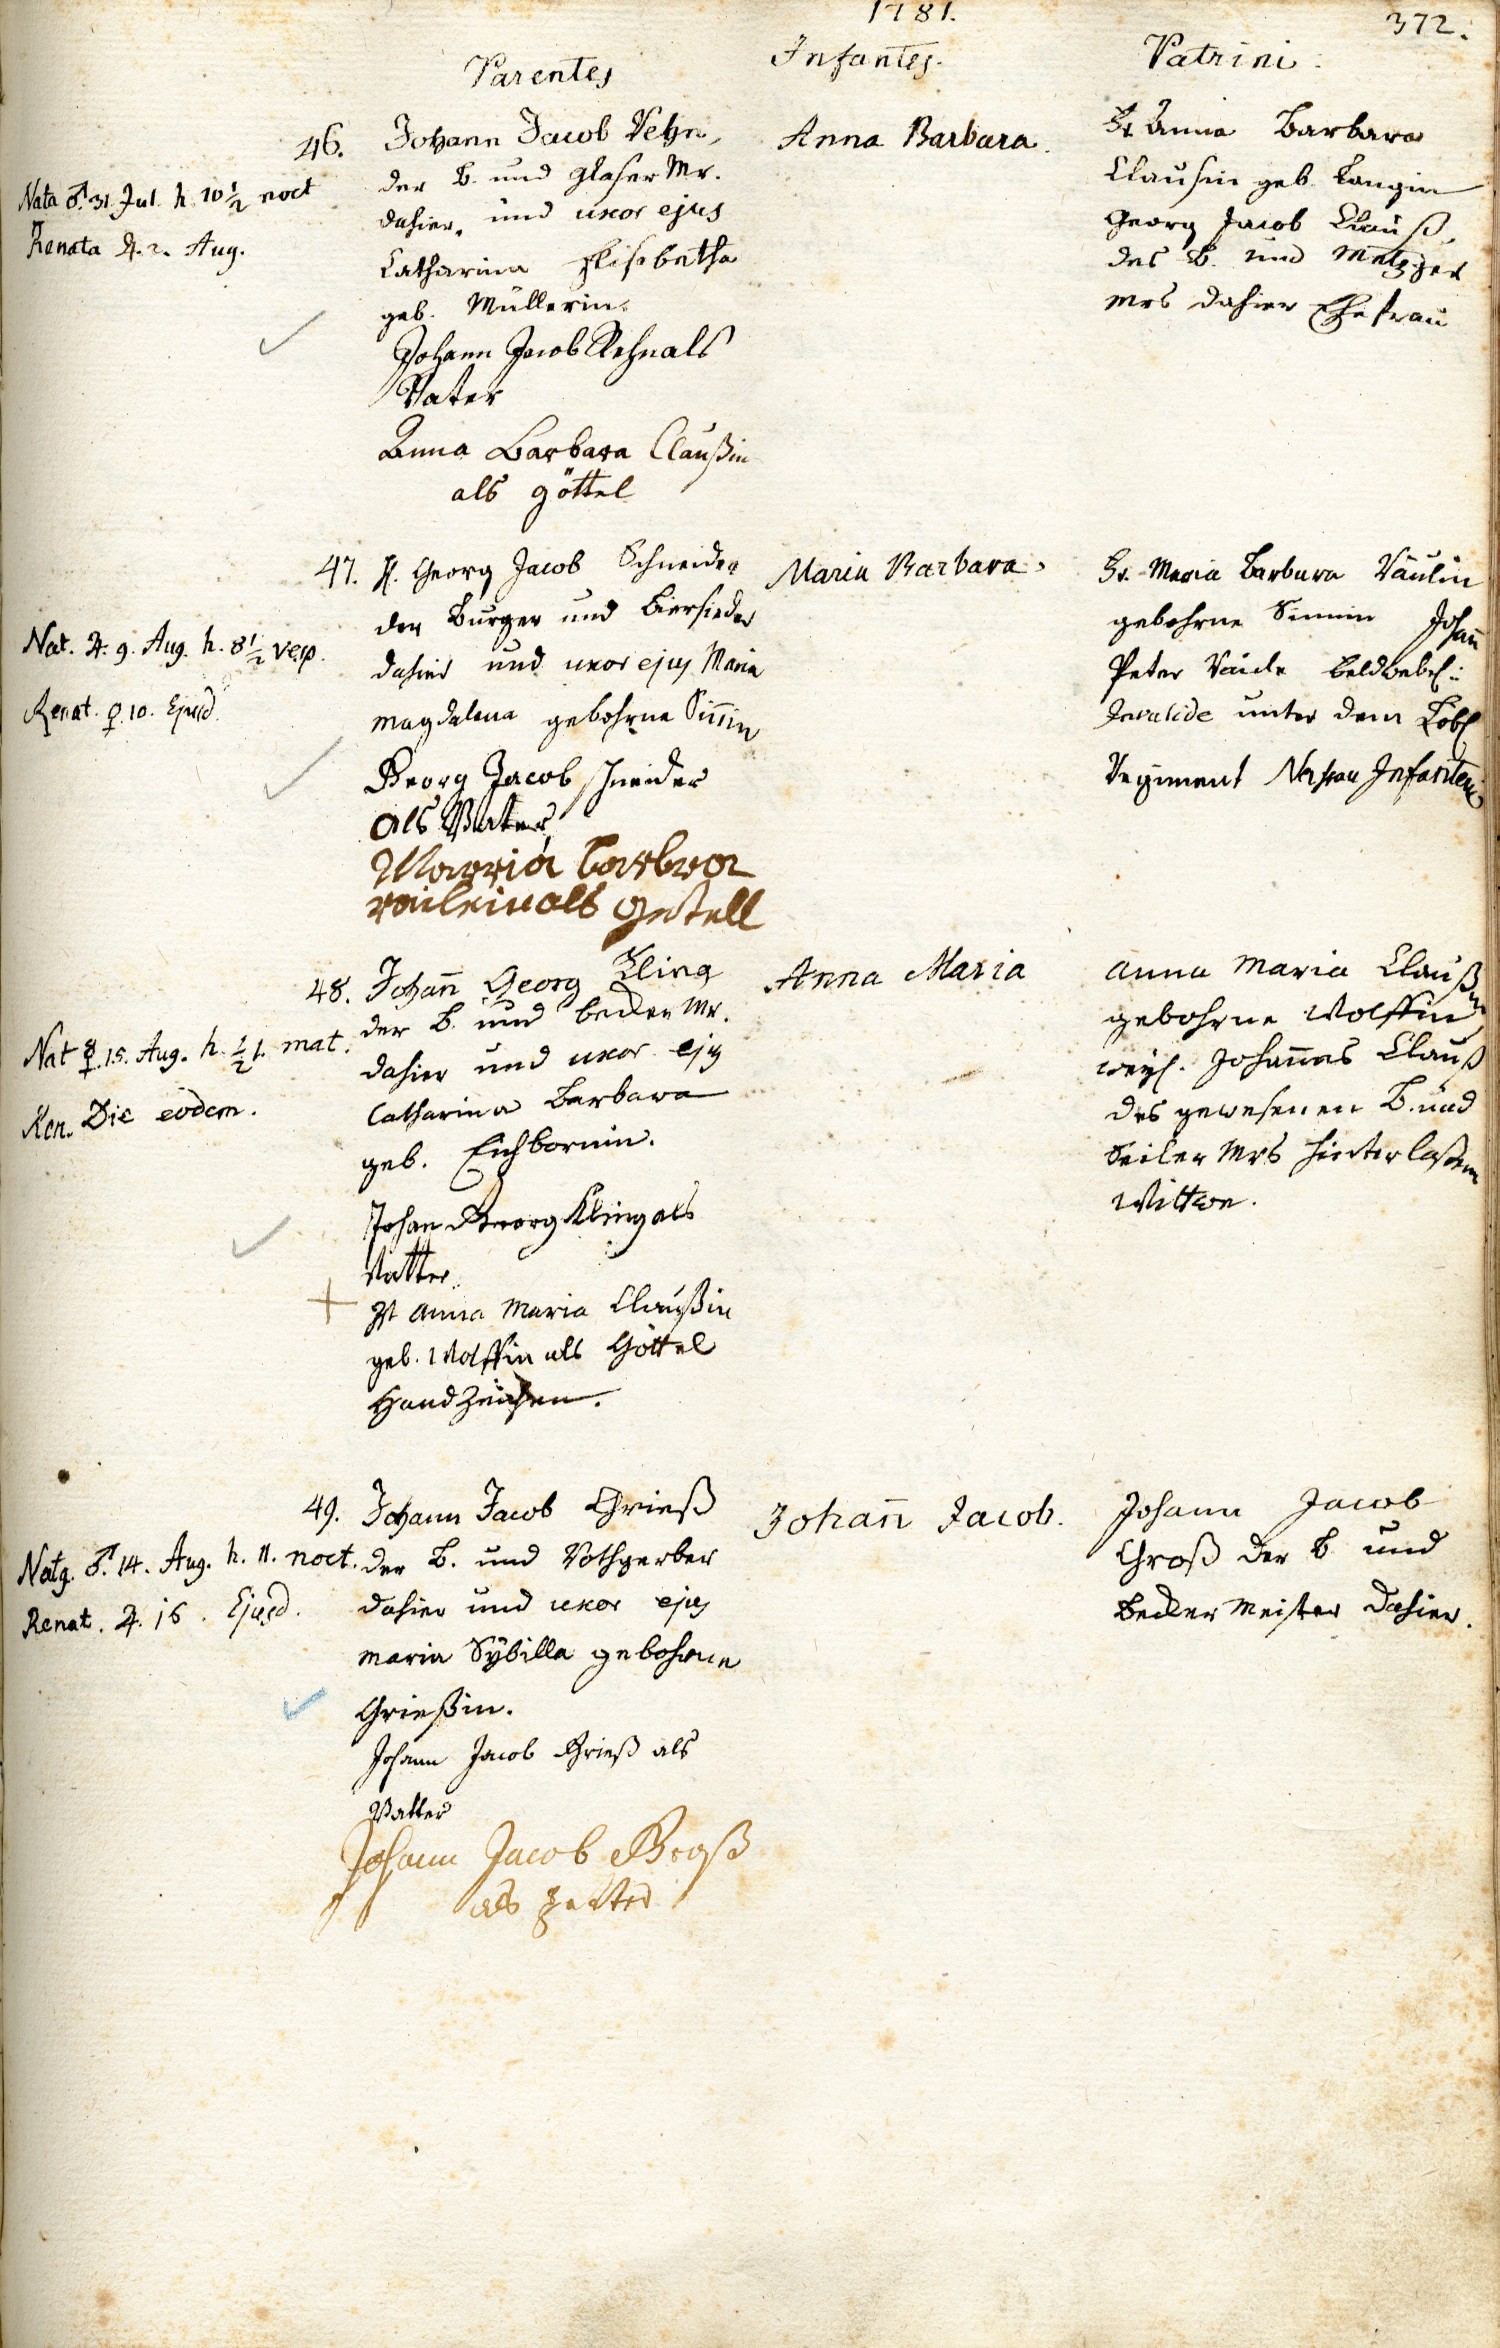 1781.
372.
Parentes
Infantes.
Patrini.
46.
Nata ♂. 31. Jul. h. 10 1/2 noct
Renata ♃. 2. Aug.
Johann Jacob Rehn,
der B. und Glaser Mr.
dahier, und uxor ejus
Catharina Elisabetha
geb. Müllerin.
Johann Jacob Rehn als
Vater
Anna Barbara Claußin
als göttel
Anna Barbara.
Fr. Anna Barbara
Clausin geb. Langin
Georg Jacob Clauß,
des B. und Metzger
Mrs dahier Ehefrau
47.
Nat. ♃. 9. Aug. h. 8 1/2 vesp.
Renat. ♀. 10. Ejusd.
H. Georg Jacob Schneider
der Burger und Biersieder
dahier und uxor ejus Maria
Magdalena gebohrne Sim̅in
Georg Jacob schneider
als Vatter
Marria barbra
railein als gettell
Maria Barbara.
Fr. Maria Barbara Räulin
gebohrne Simin Johan̅
Peter Räule
Invalide unter dem Löbl
Regiment Nassau Infanterie
48.
Nat ☿. 15. Aug. h. 1/2 1. mat.
Ren. Die eodem.
Johan̅ Georg Kling
der B. und becker Mr.
dahier und uxor ejus
Catharina Barbara
geb. Eichbornin.
Johan Georg Kling als
Vatter
+ Anna Maria Claußin
geb. Wolffin als Göttel
Handzeichen.
Anna Maria
Anna Maria Claußin
gebohrne Wolffin
weyl. Johan̅es Clauß
des gewesenen B. und
Seiler Mrs hinterlaßene
Wittwe.
49.
Natg. ♂. 14. Aug. h. 11. noct.
Renat. ♃. 16. Ejusd.
Johann Jacob Grieß
der B. und Rothgerber
dahier und uxor ejus
Maria Sybilla gebohrne
Grießin.
Johann Jacob Grieß als
Vatter
Johann Jacob Groß
als petter
Johan̅ Jacob.
Johann Jacob
Groß der B. und
Becker Meister dahier.